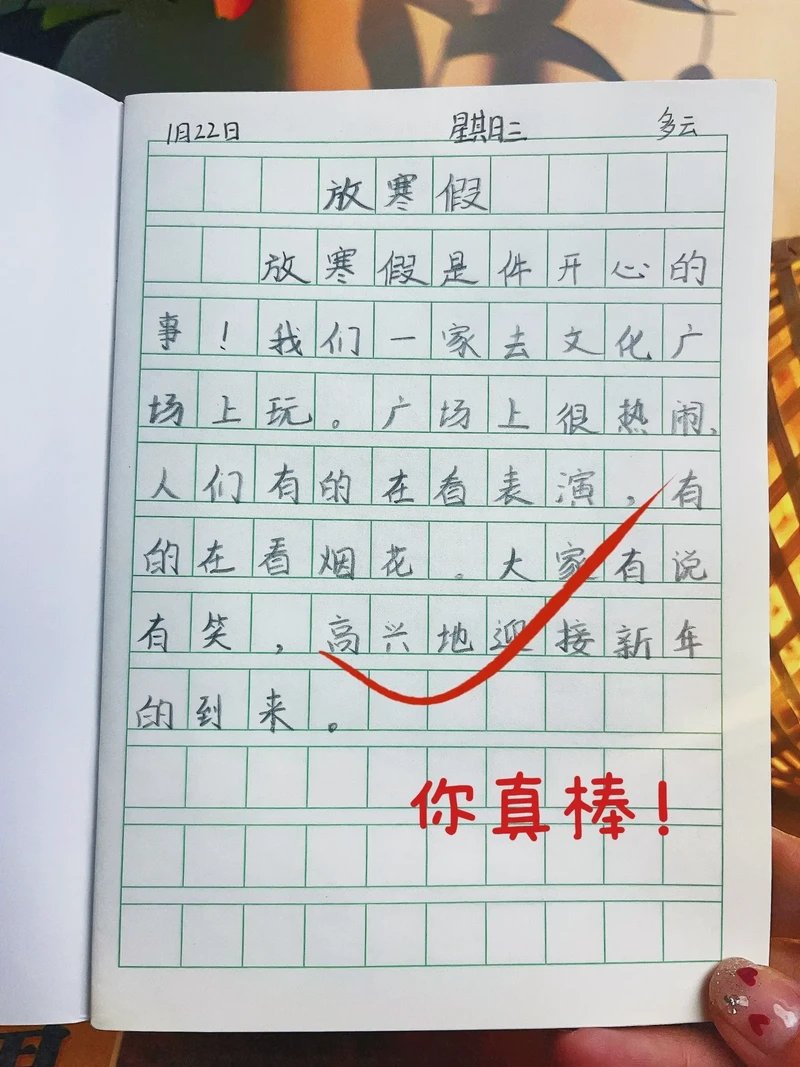 1月22日 星期三 多云
放寒假
放寒假是件开心的
事！我们一家去文化广
场上玩。广场上很热闹、
人们有的在看表演，有
的在看烟花。大家有说
有笑，高兴地迎接新年
的到来。
你真棒！